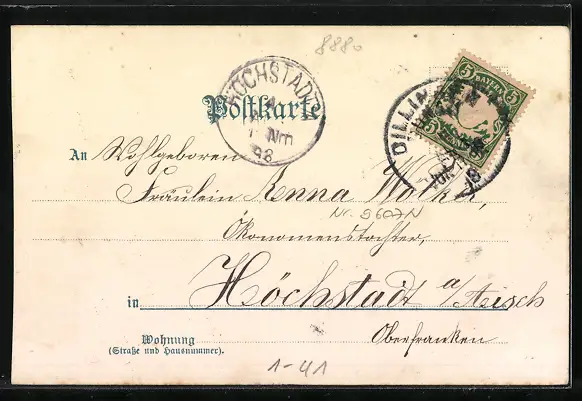 8880
HÖCHSTADT
Nm
98
Postkarte
5 BAYERN 5
5 5
DILLINGEN
An Wohlgeboren
Fräulein Anna
Nr. 9607N
Ökonomenstochter,
in Höchstadt a/Aisch
Wohnung
(Straße und Hausnummer).
Oberfranken
1-41